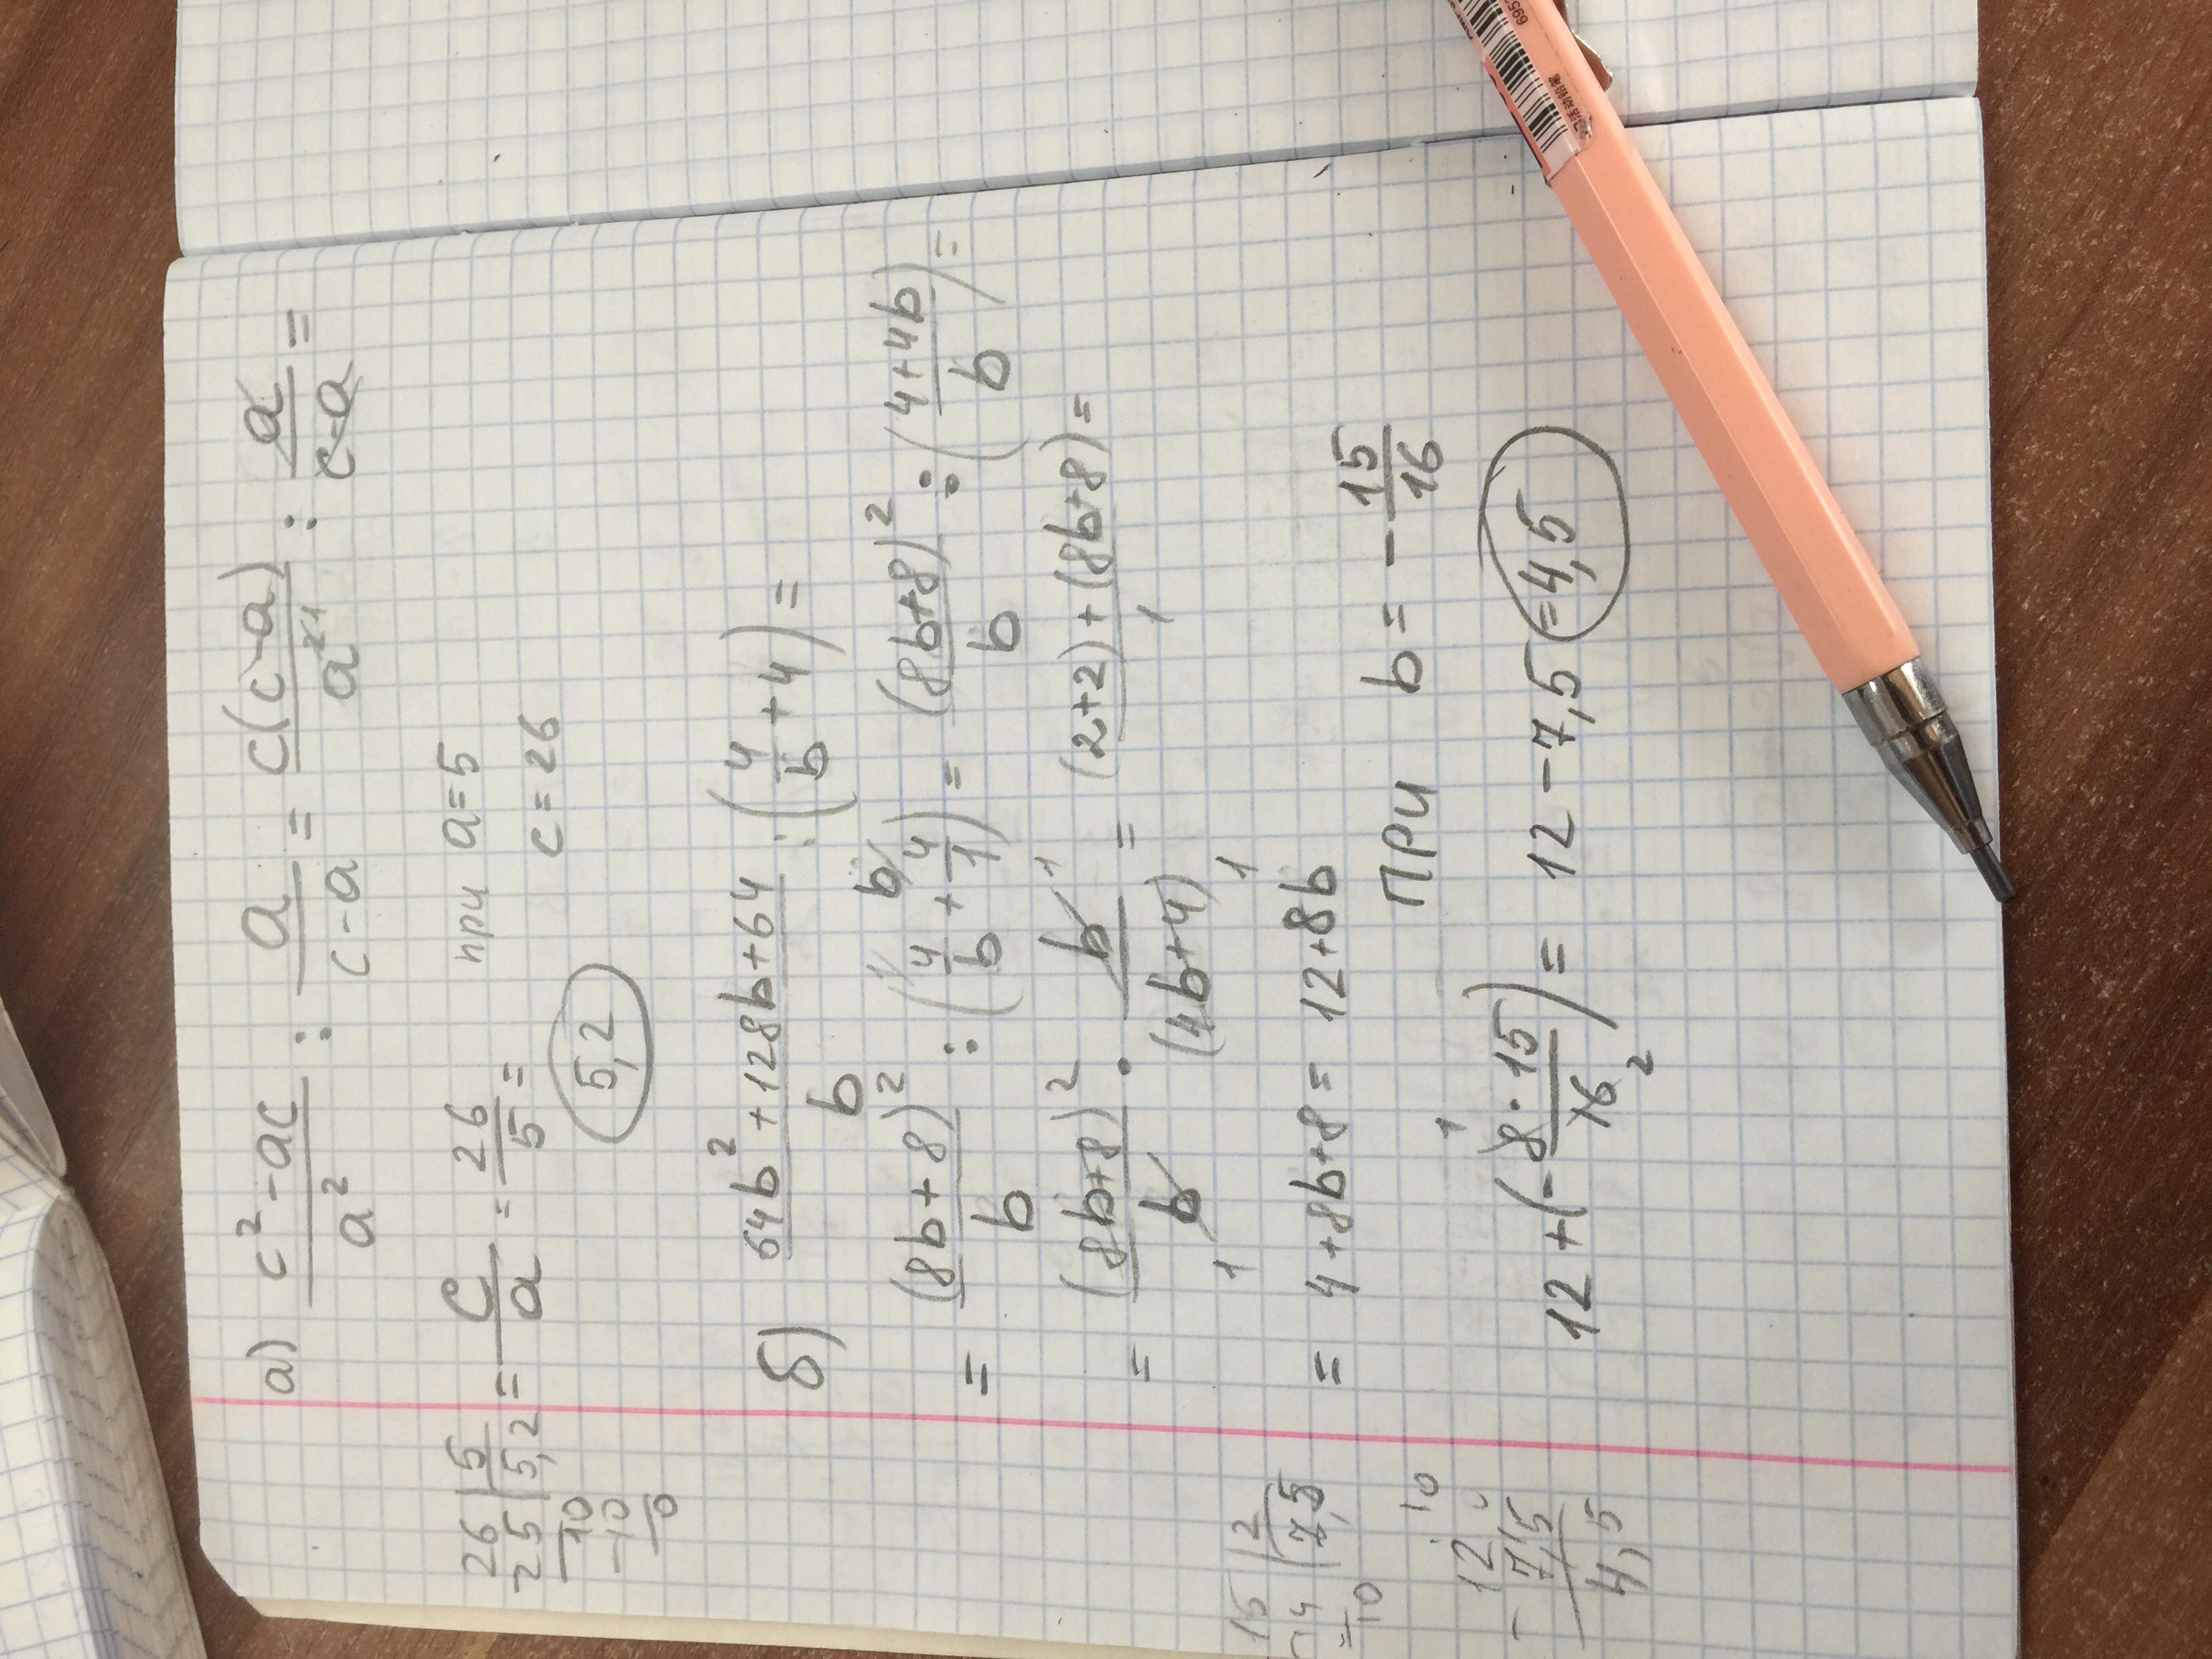 а) (c² - ac)/a² : a/(c - a) = c(c-a)/a²¹ : a/(c-a) =
= c/a = 26/5 = 5,2
при a = 5
c = 26
26 | 5
25 | 5,2
10
-10
0
б) (64b² + 128b + 64)/b : (4/b + 4) =
= (8b + 8)²/b : (4/b + 4/1) = (8b+8)²/b : ((4+4b)/b) =
= (8b+8)²/b · b/(4b+4) = (2+2)+(8b+8)/1 =
= 4+8b+8 = 12+8b
ПРИ b = - 15/16
12 + (- 8·15/16) = 12 - 7,5 = 4,5
15 | 2
14 | 7,5
10
10
- 12
7,5
4,5